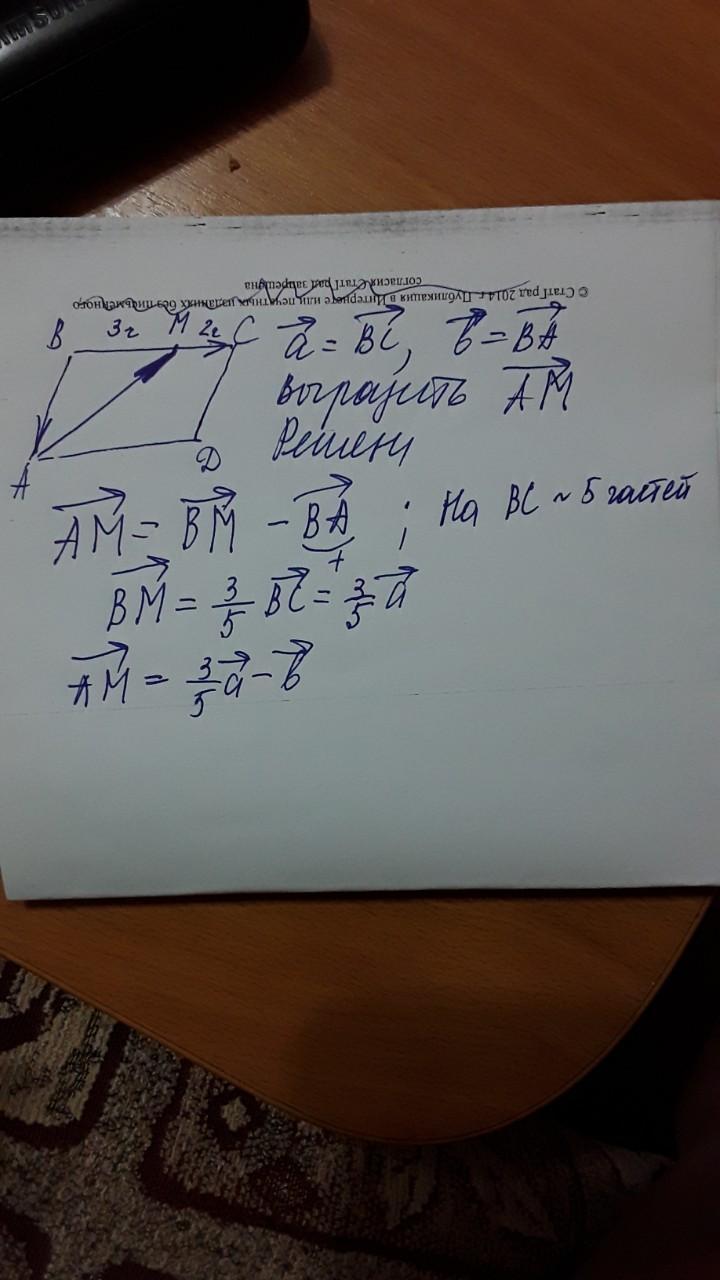 SAMSUNG
© СтатГрад 2014 г. Публикация в Интернете или печатных изданиях без письменного
согласия СтатГрад запрещена
B 3ч M 2ч C
A D
a⃗ = BC⃗, b⃗ = BA⃗
Выразить AM⃗
Решени
AM⃗ = BM⃗ - BA⃗ ; На BC ~ 5 частей
+
BM⃗ = 3/5 BC⃗ = 3/5 a⃗
AM⃗ = 3/5 a⃗ - b⃗